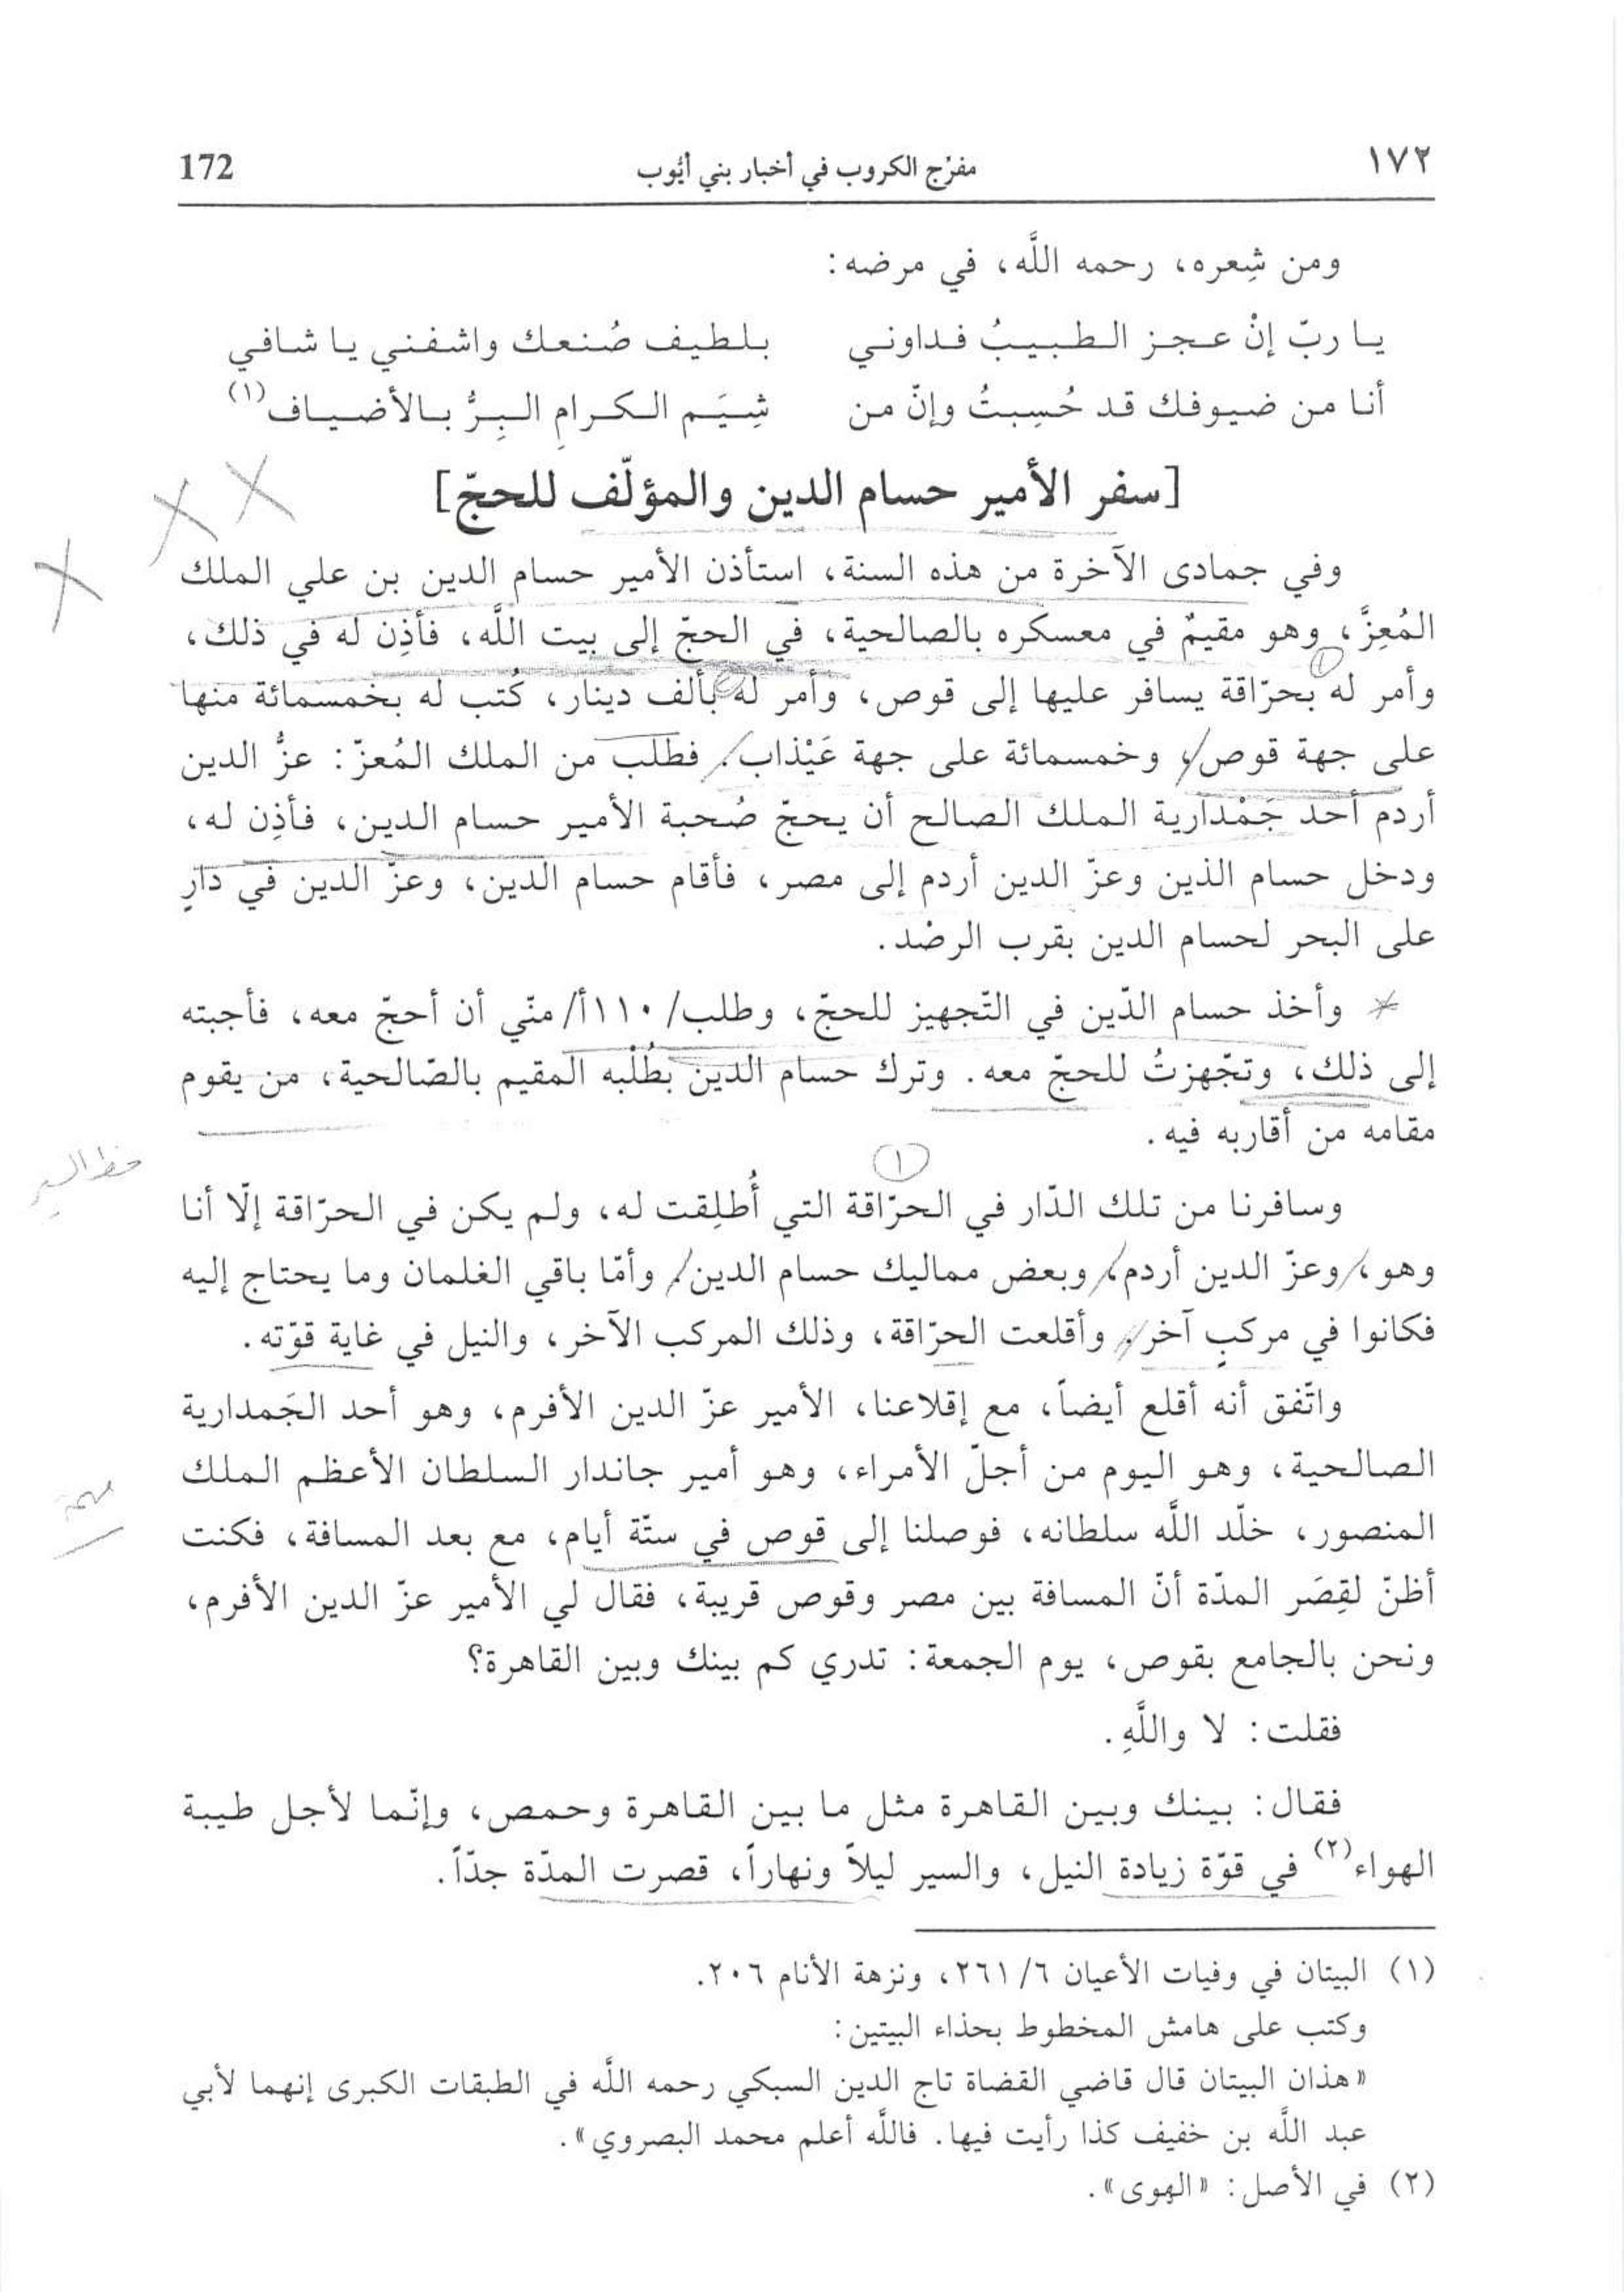 ١٧٢ مفرّج الكروب في أخبار بني أيّوب 172
ومن شِعره، رحمه اللَّه، في مرضه:
يا ربّ إنْ عجز الطبيبُ فداوني بلطيف صُنعك واشفني يا شافي
أنا من ضيوفك قد حُسِبتُ وإنّ من شِيَم الكرامِ البِرُّ بالأضياف(١)
[سفر الأمير حسام الدين والمؤلّف للحجّ]
وفي جمادى الآخرة من هذه السنة، استأذن الأمير حسام الدين بن علي الملك
المُعِزَّ، وهو مقيمٌ في معسكره بالصالحية، في الحجّ إلى بيت اللَّه، فأذِن له في ذلك،
وأمر له بحرّاقة يسافر عليها إلى قوص، وأمر له بألف دينار، كُتب له بخمسمائة منها
على جهة قوص، وخمسمائة على جهة عَيْذاب. فطلب من الملك المُعزّ: عزُّ الدين
أردم أحد جَمْدارية الملك الصالح أن يحجّ صُحبة الأمير حسام الدين، فأذِن له،
ودخل حسام الذين وعزّ الدين أردم إلى مصر، فأقام حسام الدين، وعزّ الدين في دارٍ
على البحر لحسام الدين بقرب الرصْد.
وأخذ حسام الدّين في التّجهيز للحجّ، وطلب/ ١١٠أ/ منّي أن أحجّ معه، فأجبته
إلى ذلك، وتجّهزتُ للحجّ معه. وترك حسام الدين بطُلْبه المقيم بالصّالحية، من يقوم
مقامه من أقاربه فيه.
١
وسافرنا من تلك الدّار في الحرّاقة التي أُطلِقت له، ولم يكن في الحرّاقة إلّا أنا
وهو، وعزّ الدين أردم، وبعض مماليك حسام الدين. وأمّا باقي الغلمان وما يحتاج إليه
فكانوا في مركبٍ آخر. وأقلعت الحرّاقة، وذلك المركب الآخر، والنيل في غاية قوّته.
واتّفق أنه أقلع أيضاً، مع إقلاعنا، الأمير عزّ الدين الأفرم، وهو أحد الجَمدارية
الصالحية، وهو اليوم من أجلّ الأمراء، وهو أمير جاندار السلطان الأعظم الملك
المنصور، خلّد اللَّه سلطانه، فوصلنا إلى قوص في ستّة أيام، مع بعد المسافة، فكنت
أظنّ لقِصَر المدّة أنّ المسافة بين مصر وقوص قريبة، فقال لي الأمير عزّ الدين الأفرم،
ونحن بالجامع بقوص، يوم الجمعة: تدري كم بينك وبين القاهرة؟
فقلت: لا واللَّهِ.
فقال: بينك وبين القاهرة مثل ما بين القاهرة وحمص، وإنّما لأجل طيبة
الهواء(٢) في قوّة زيادة النيل، والسير ليلاً ونهاراً، قصرت المدّة جدّاً.
(١) البيتان في وفيات الأعيان ٦/ ٢٦١، ونزهة الأنام ٢٠٦.
وكتب على هامش المخطوط بحذاء البيتين:
«هذان البيتان قال قاضي القضاة تاج الدين السبكي رحمه اللَّه في الطبقات الكبرى إنهما لأبي
عبد اللَّه بن خفيف كذا رأيت فيها. فاللَّه أعلم محمد البصروي».
(٢) في الأصل: «الهوى».